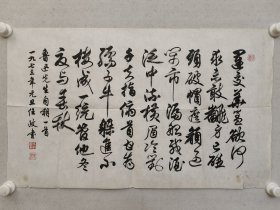 運交華蓋欲何
求未敢翻身已碰
頭破帽遮顏過
鬧市漏船載酒
泛中流橫眉冷對
千夫指俯首甘為
孺子牛躲進小
樓成一統管他冬
夏與春秋
魯迅先生自嘲一首
一九七三年元旦任政書